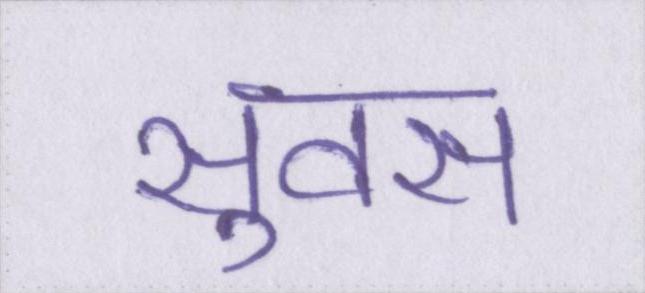 सुवस